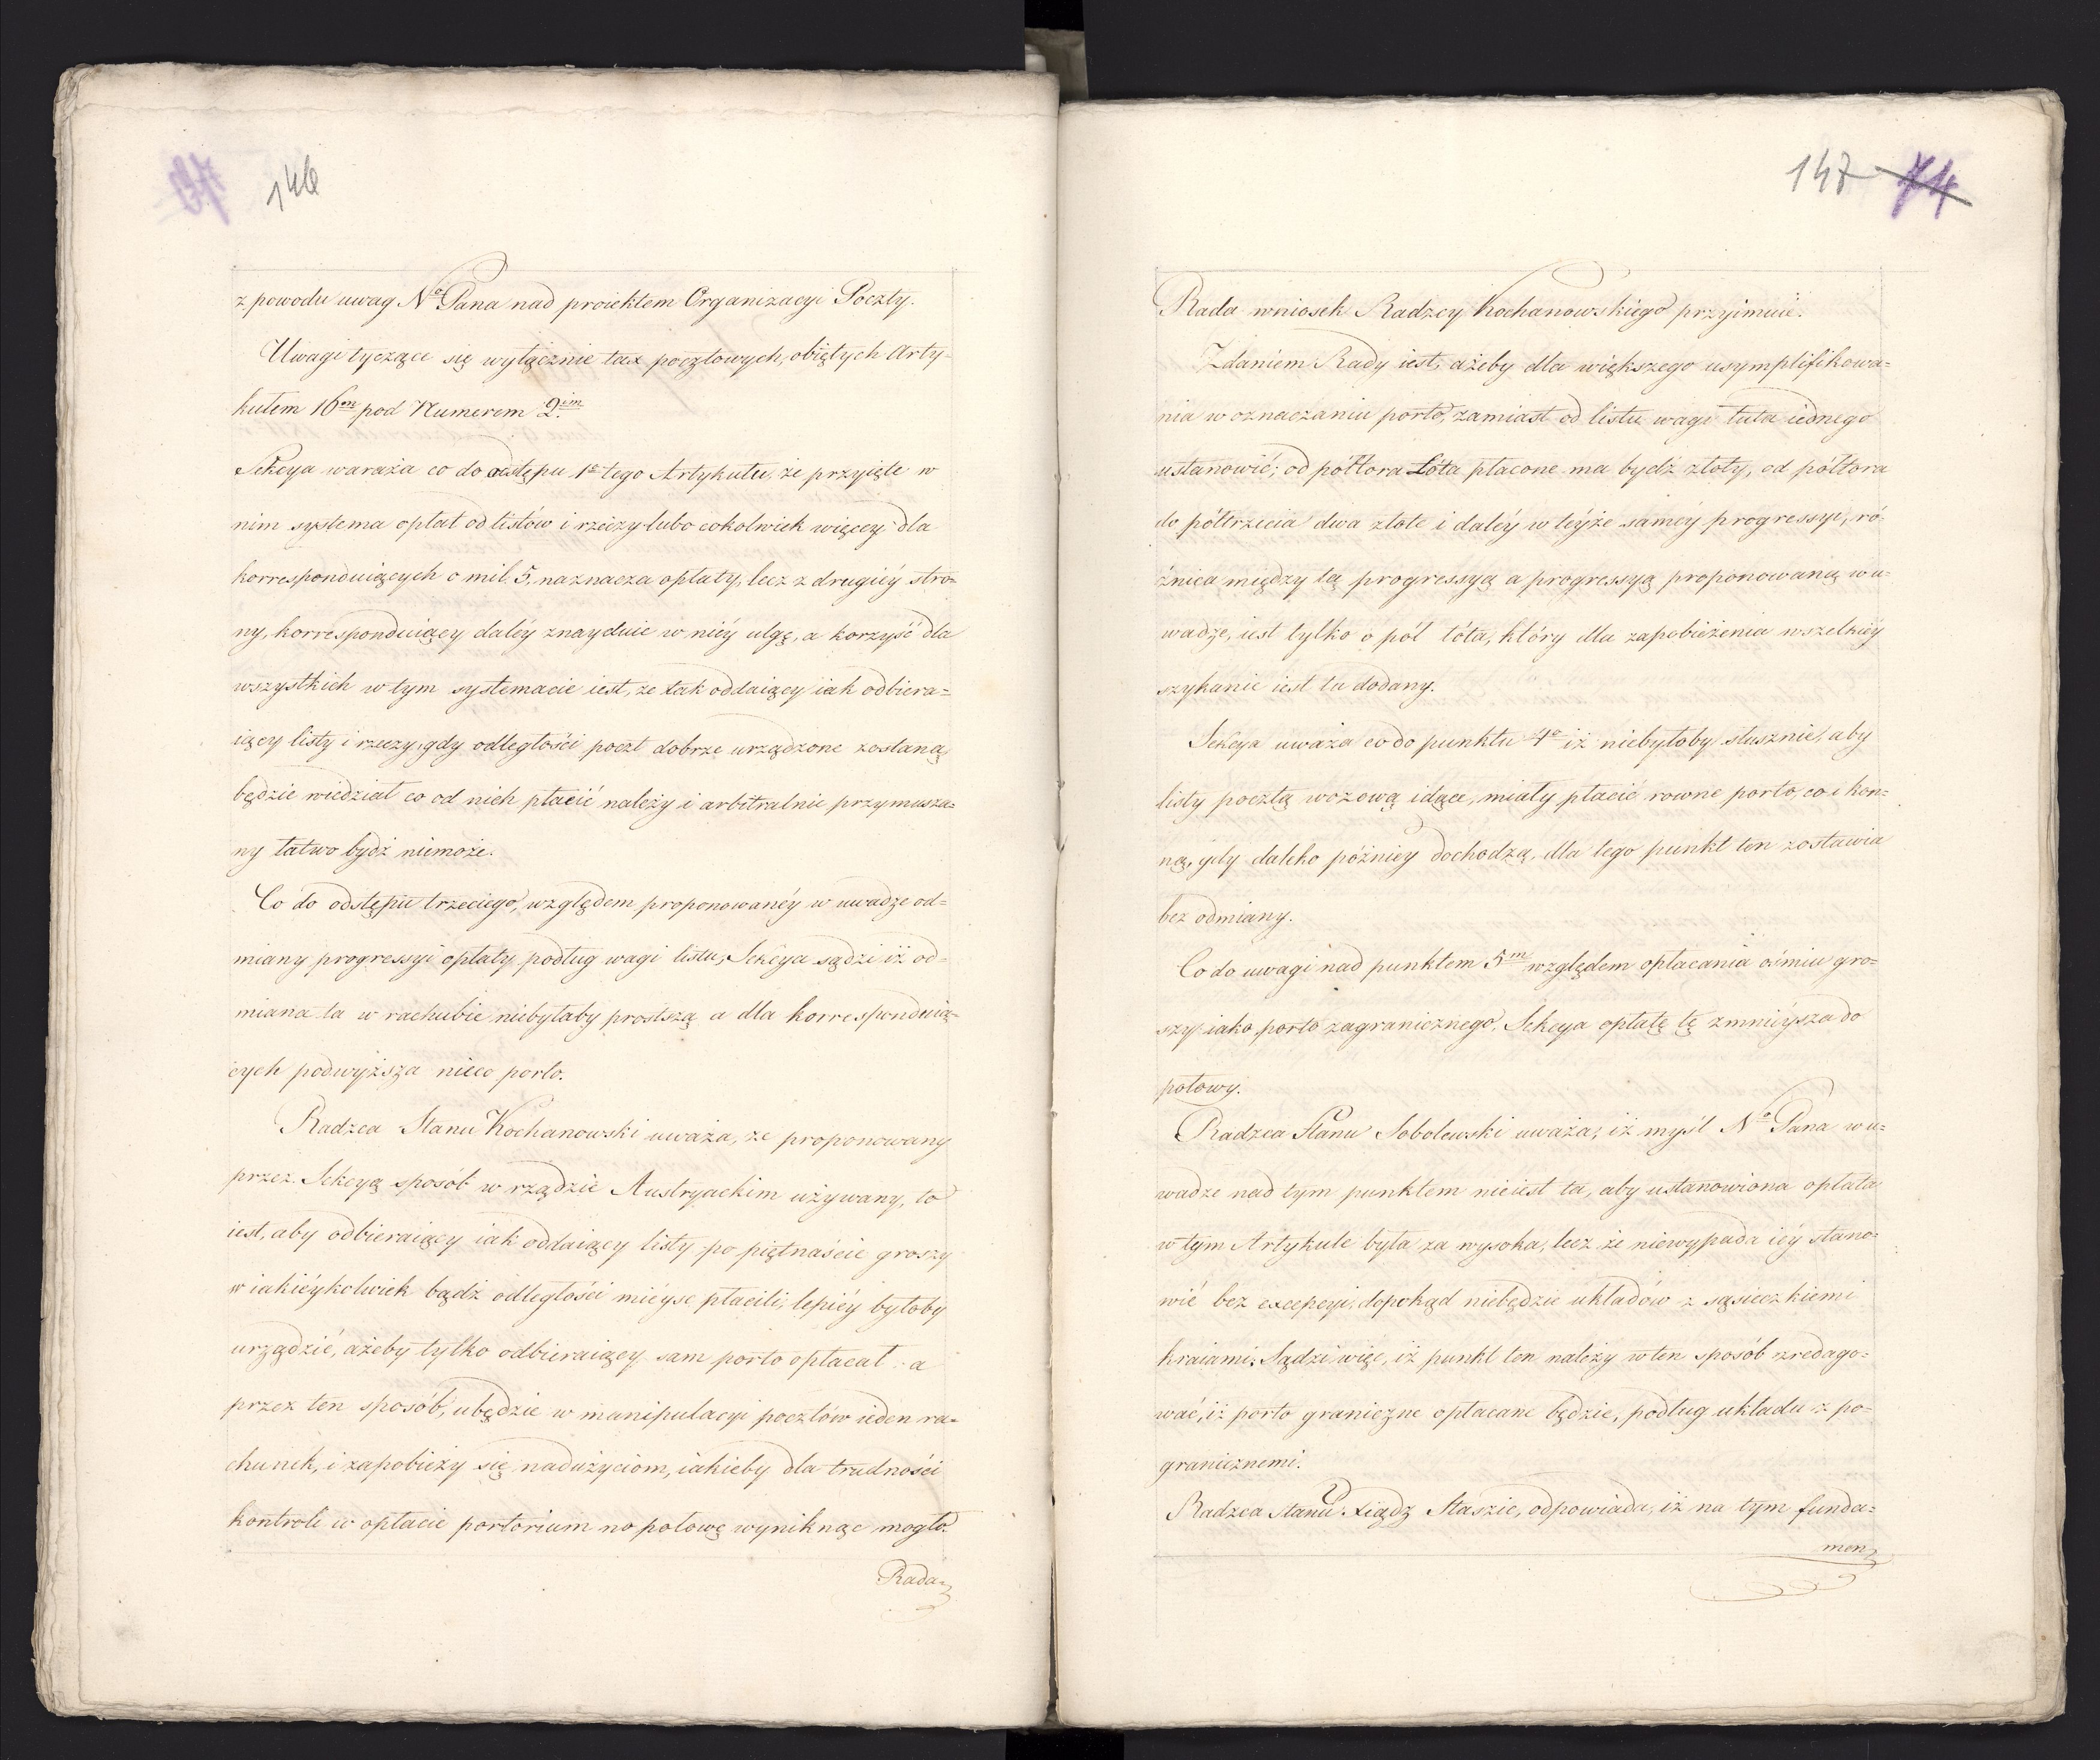 146
z powodu uwag No Pana nad proiektem Organizacyi Poczty.
Uwagi tyczące się wyłącznie tax pocztowych, obiętych Arty-
kułem 16m pod Numerem 2im
Sekcya waraża co do odstępu 1o tego Artykułu, że przyięte w
nim systema opłat od listów i rzeczy lubo cokolwiek więcey dla
korrespondujących o mil. 5, naznacza opłaty, lecz z drugiéy stro-
ny, korrespondujący daléy znayduie w niéy ulgę, a korzyść dla
wszystkich w tym systemacie iest, że tak oddaiący iak odbiera=
iący listy i rzeczy, gdy odległości poczt dobrze urządzone zostaną
będzie wiedział co od nich płacić należy i arbitralnie przymusza=
ny łatwo bydź niemoże.
Co do odstępu trzeciego, względem proponowanéy w uwadze od=
miany progressyi opłaty podług wagi listu, Sekcya sądzi iż od=
miana ta w rachubie niebyłaby prostszą a dla korrespondują=
cych podwyższa nieco porto.
Radzca Stanu Kochanowski uważa, że proponowany
przez Sekcyą sposób w rządzie Austryackim używany, to
iest, aby odbieraiący iak oddaiący listy po piętnaście groszy
w iakiéykolwiek bądź odległości mieysc płacili, lepiéy byłoby
urządzić, ażeby tylko odbieraiący sam porto opłacał: a
przez ten sposób, ubędzie w manipulacyi pocztów ieden ra=
chunek, i zapobieży się nadużyciom, iakieby dla trudności
kontroli w opłacie portorium na połowę wyniknąc mogło.
Rada
147 74
Rada wniosek Radzcy Kochanowskiego przyimuie.
Zdaniem Rady iest, ażeby dla większego usymplifikowa=
nia w oznaczaniu porto, zamiast od listu wagi łuta iednego
ustanowić; od półtora Łóta płacone ma bydź złoty, od półtora
do półtrzecia dwa złote i daléy w téyże saméy progressyi, ró=
żnica między tą progressyą a progressyą proponowaną w u=
wadze, iest tylko o pół łóta, który dla zapobieżenia wszelkiéy
szykanie iest tu dodany.
Sekcya uważa co do punktu 4o iż niebyłoby słusznie, aby
listy pocztą wozową idące, miały płacić rowne porto, co i kon=
ną, gdy daleko późniey dochodzą, dla tego punkt ten zostawia
bez odmiany.
Co do uwagi nad punktem 5m względem opłacania ośmiu gro=
szy iako porto zagranicznego, Sekcya opłatę tę zmnieysza do
połowy.
Radzca Stanu Sobolewski uważa, iż myśl No Pana w u=
wadze nad tym punktem nieiest ta, aby ustanowiona opłata
w tym Artykule była za wysoka, lecz że niewypada iéy stano=
wić bez excepcyi, dopokąd niebędzie układów z sąsieczkiemi
kraiami; Sądzi więc, iż punkt ten należy w ten sposób zredago=
wać, iż porto graniczne opłacane będzie, podług układu z po=
granicznemi.
Radzca Stanu Xiądz Staszic, odpowiada, iż na tym funda=
men